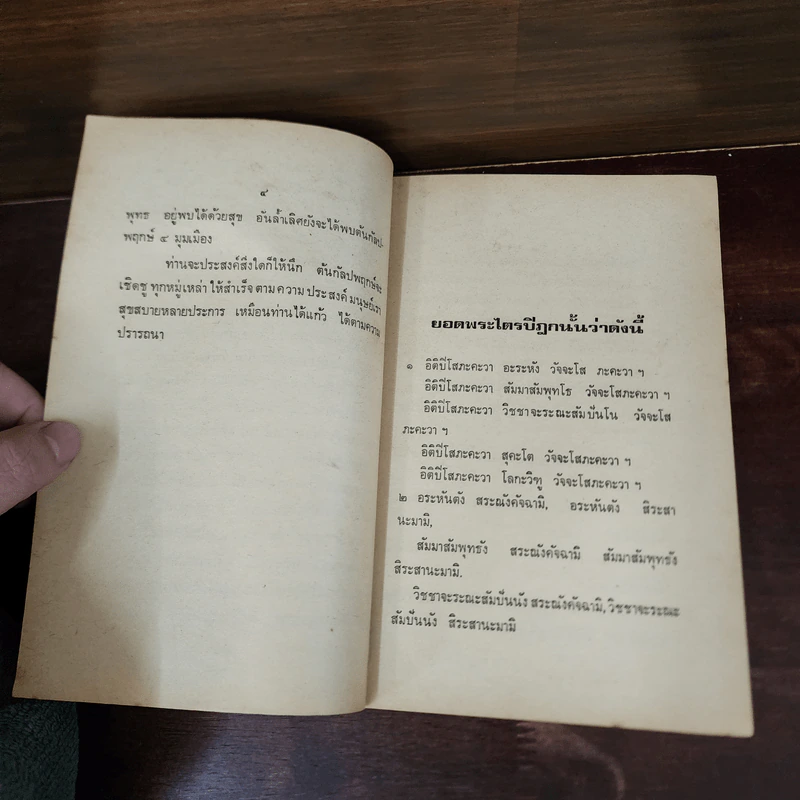 ๔
พุทธ อยู่พบได้ด้วยสุข อันล้ำเลิศยังจะได้พบต้นกัลป-
พฤกษ์ ๔ มุมเมือง
ท่านจะประสงค์สิ่งใดก็ให้นึก ต้นกัลปพฤกษ์จะ
เชิดชู ทุกหมู่เหล่า ให้สำเร็จ ตามความ ประสงค์ มนุษย์เรา
สุขสบายหลายประการ เหมือนท่านได้แก้ว ได้ตามความ
ปรารถนา
ยอดพระไตรปิฎกนั้นว่าดังนี้
๑ อิติปิโสภะคะวา อะระหัง วัจจะโส ภะคะวา ฯ
อิติปิโสภะคะวา สัมมาสัมพุทโธ วัจจะโสภะคะวา ฯ
อิติปิโสภะคะวา วิชชาจะระณะสัมปันโน วัจจะโส
ภะคะวา ฯ
อิติปิโสภะคะวา สุคะโต วัจจะโสภะคะวา ฯ
อิติปิโสภะคะวา โลกะวิฑู วัจจะโสภะคะวา ฯ
๒ อระหันตัง สระณังคัจฉามิ, อระหันตัง สิระสา
นะมามิ,
สัมมาสัมพุทธัง สระณังคัจฉามิ สัมมาสัมพุทธัง
สิระสานะมามิ.
วิชชาจะระณะสัมปันนัง สระณังคัจฉามิ, วิชชาจะระณะ
สัมปันนัง สิระสานะมามิ